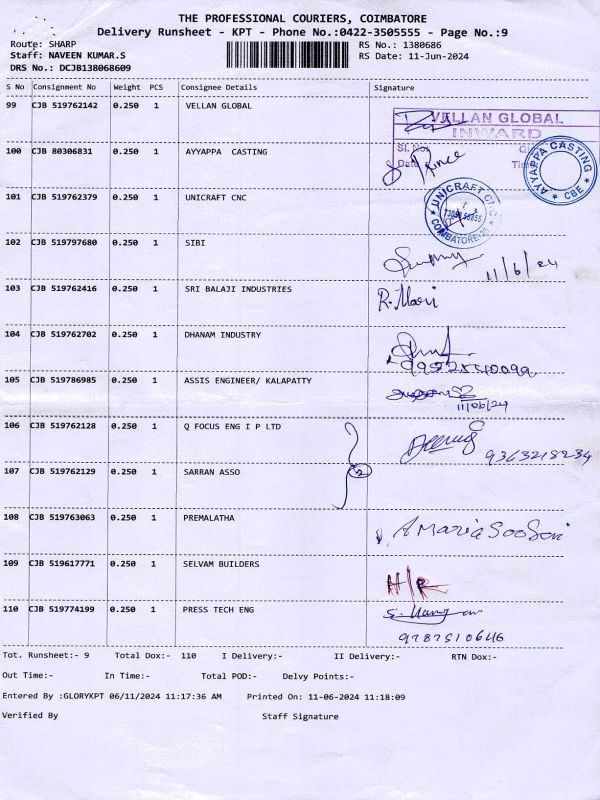 THE PROFESSIONAL COURIERS, COIMBATORE
Delivery Runsheet - KPT - Phone No.:0422-3505555 - Page No.:9
Route: SHARP
RS No.: 1380686
Staff: NAVEEN KUMAR.S
RS Date: 11-Jun-2024
DRS No.: DCJB138068609
S No Consignment No Weight PCS Consignee Details Signature
99 CJB 519762142 0.250 1 VELLAN GLOBAL
VELLAN GLOBAL
INWARD
Sl. No.
Date
100 CJB 80306831 0.250 1 AYYAPPA CASTING
Prince
AYYAPPA CASTING
CBE
101 CJB 519762379 0.250 1 UNICRAFT CNC
UNICRAFT CNC
COIMBATORE
102 CJB 519797680 0.250 1 SIBI
11/6/24
103 CJB 519762416 0.250 1 SRI BALAJI INDUSTRIES
R. Mari
104 CJB 519762702 0.250 1 DHANAM INDUSTRY
105 CJB 519786985 0.250 1 ASSIS ENGINEER/ KALAPATTY
11/06/24
106 CJB 519762128 0.250 1 Q FOCUS ENG I P LTD
9363218234
107 CJB 519762129 0.250 1 SARRAN ASSO
2
108 CJB 519763063 0.250 1 PREMALATHA
A Maria SooSai
109 CJB 519617771 0.250 1 SELVAM BUILDERS
H/R
110 CJB 519774199 0.250 1 PRESS TECH ENG
9787510646
Tot. Runsheet:- 9 Total Dox:- 110 I Delivery:- II Delivery:- RTN Dox:-
Out Time:- In Time:- Total POD:- Delvy Points:-
Entered By :GLORYKPT 06/11/2024 11:17:36 AM Printed On: 11-06-2024 11:18:09
Verified By Staff Signature